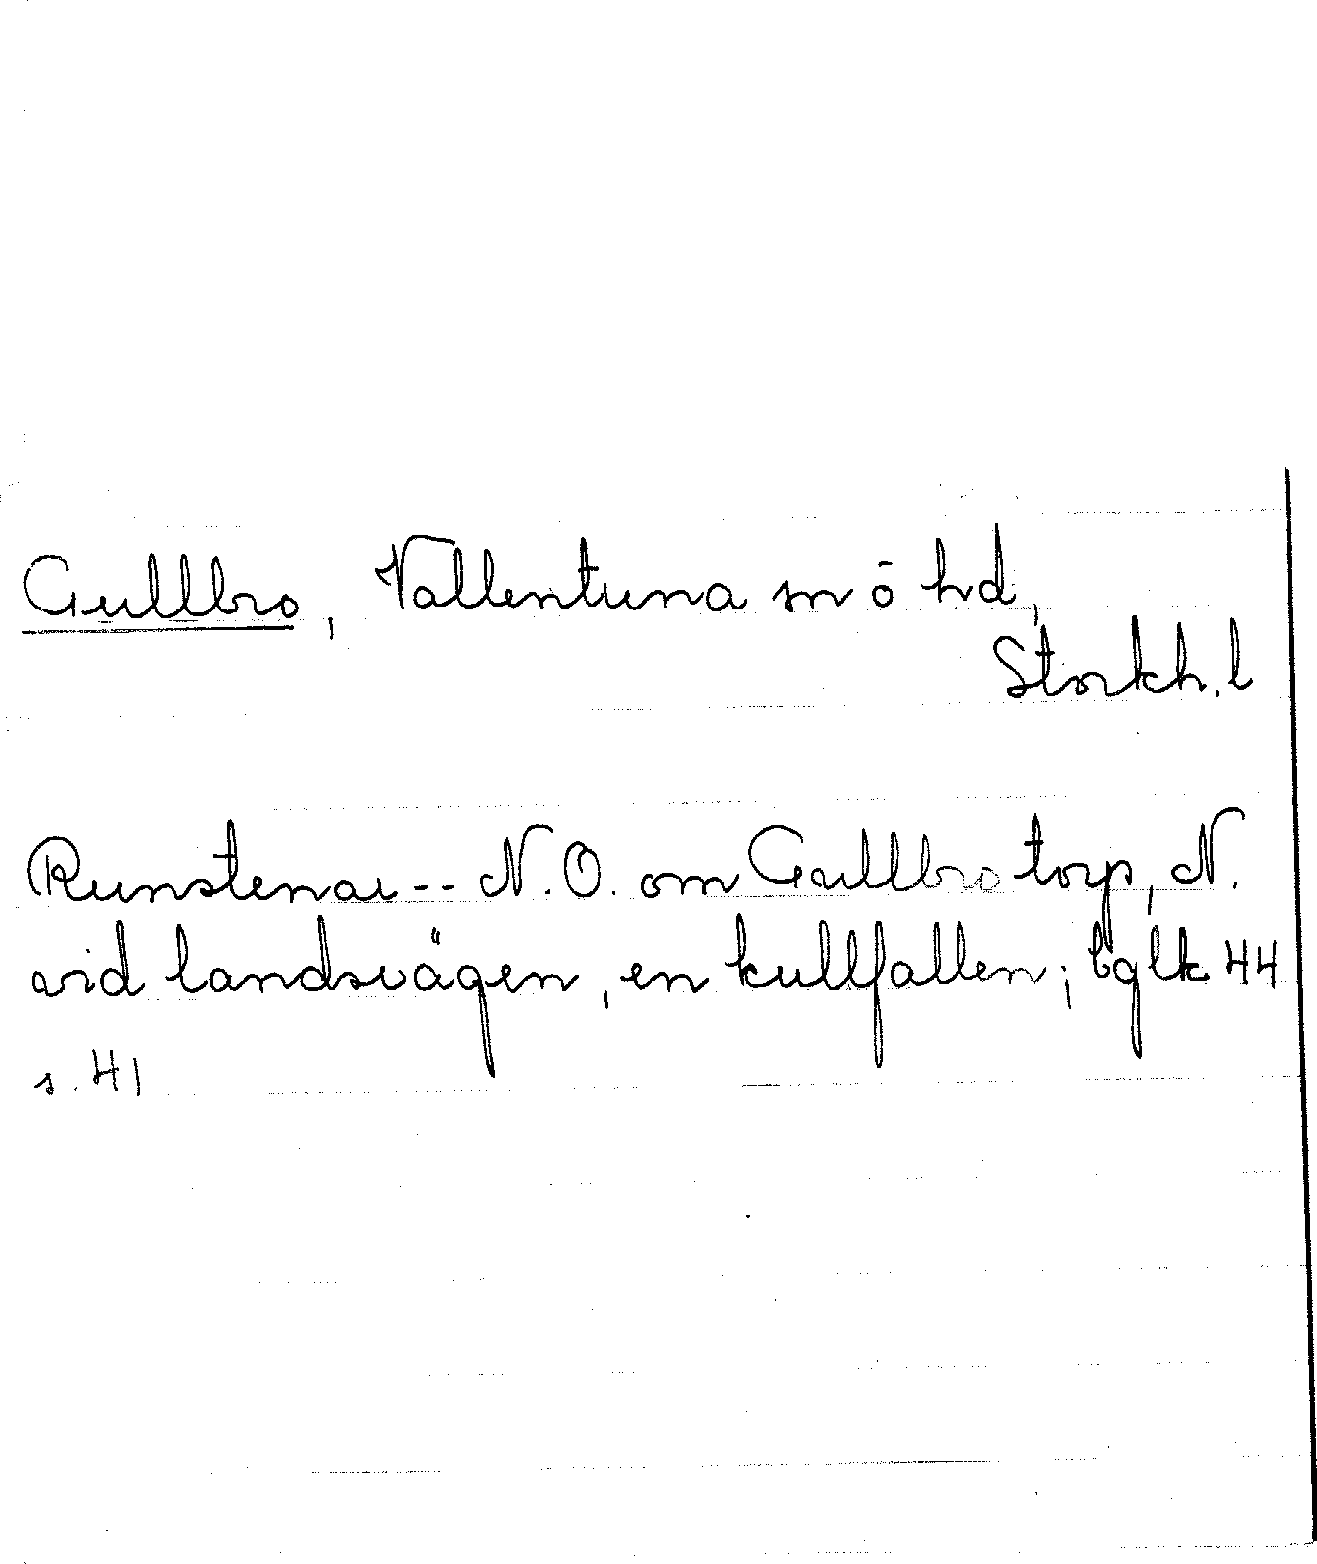 Gullbro, Vallentuna sn ō hd,
Stockh. l
Runstenar -- N.O. om Gullbro torp, N.
vid landsvägen, en kullfallen; bglk 44
s. 41